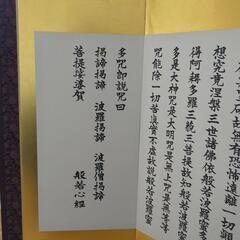 故無有恐怖遠離一切顛
想究竟涅槃三世諸佛依般若波羅蜜
得阿耨多羅三藐三菩提故知般若波羅蜜
多是大神咒是大明咒是無上咒是無等等
咒能除一切苦真實不虚故説般若波羅蜜
多咒即説咒曰
揭諦揭諦 波羅揭諦 波羅僧揭諦
菩提娑婆賀 般若心經